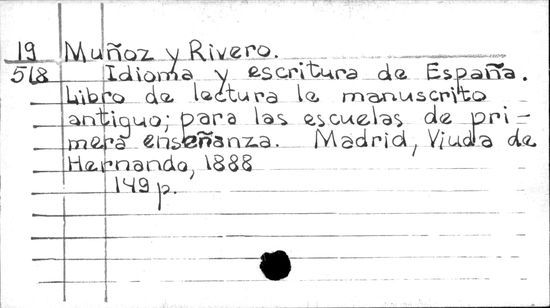 19 Muñoz y Rivero.
518 Idioma y escritura de España.
Libro de lectura le manuscrito
antiguo; para las escuelas de pri-
mera enseñanza. Madrid, Viuda de
Hernando, 1888
149 p.